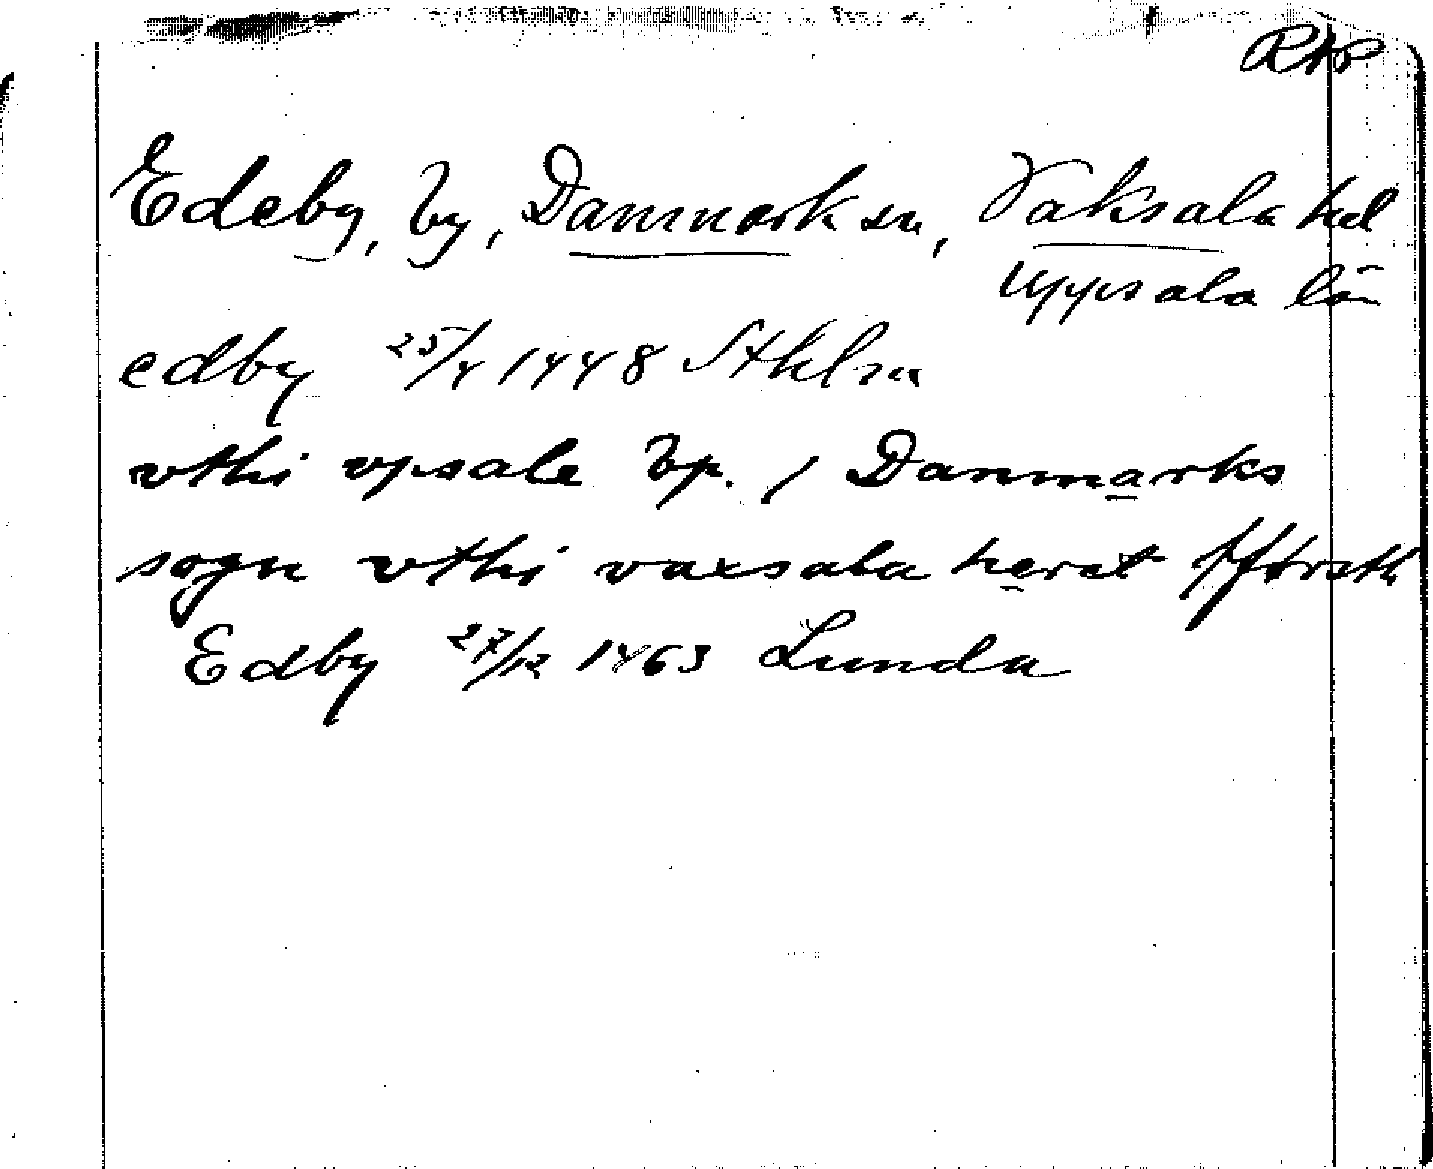 RAP
Edeby, by, Danmark sn, Vaksala hd
Uppsala län
edby 25/4 1448 Sthlm
vthi vpsale bp. / Danmarks
sogn vthi vaxsala heret fførsth
Edby 27/12 1463 Lunda